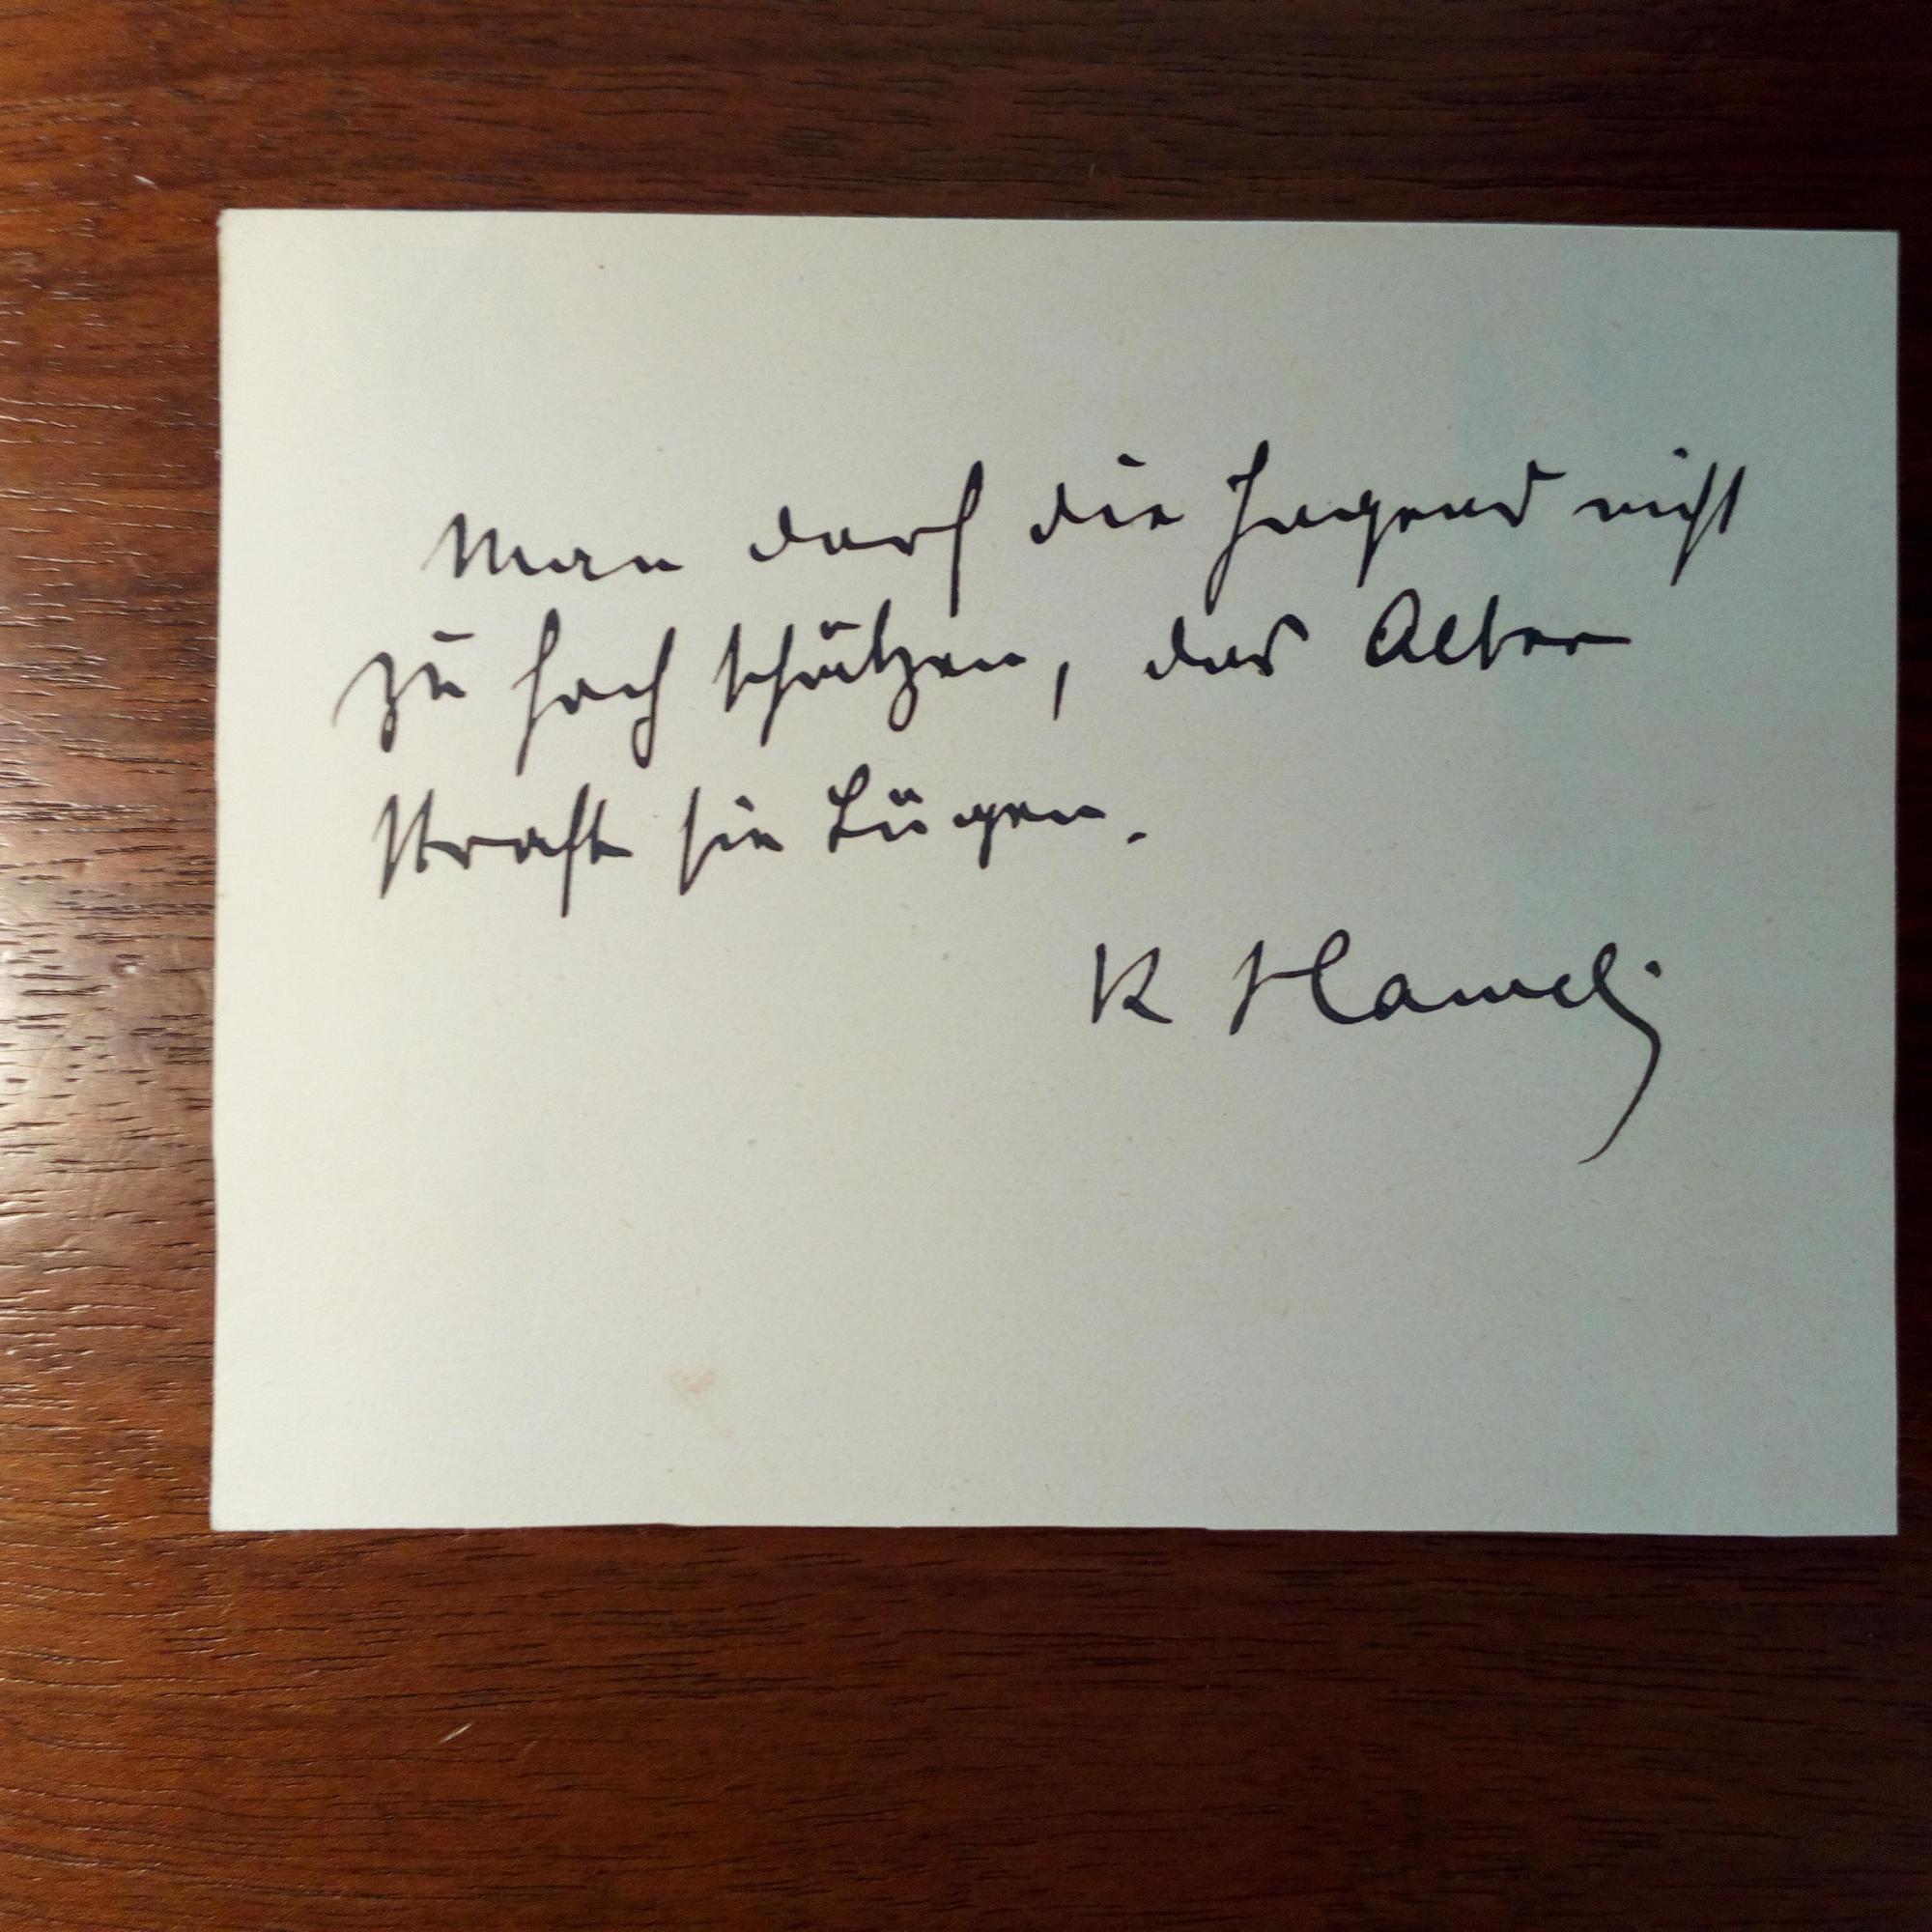 Man darf die Jugend nicht
zu hoch schätzen, das Alter
straft sie Lügen.
K